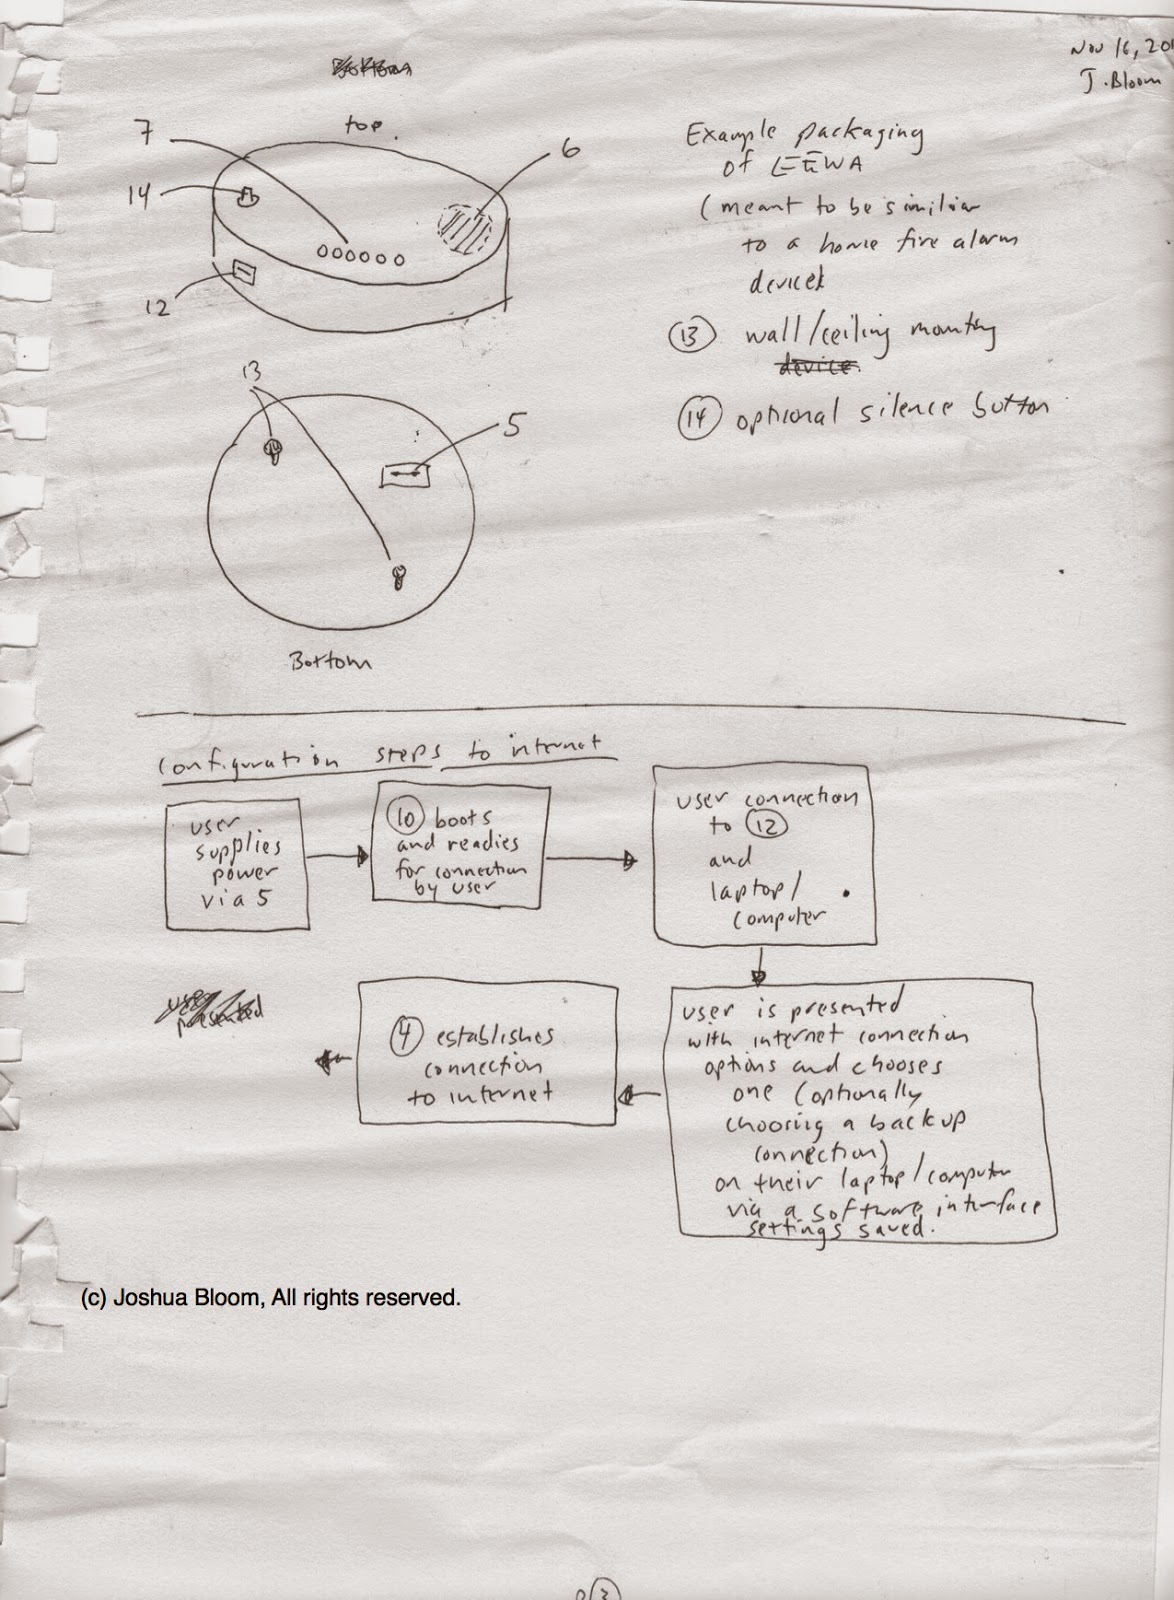 Nov 16, 201
J. Bloom
top.
7
6
14
12
Example packaging
of EEWA
(meant to be similiar
to a home fire alarm
device)
13 wall/ceiling mounting
device.
14 optional silence button
13
5
Bottom
configuration steps to internet
user
supplies
power
via 5
10 boots
and readies
for connection
by user
user connection
to 12
and
laptop/
computer
user is presented
with internet connection
options and chooses
one (optionally
choosing a backup
connection)
on their laptop/computer
via a software interface
settings saved.
4 establishes
connection
to internet
user
presented
(c) Joshua Bloom, All rights reserved.
3